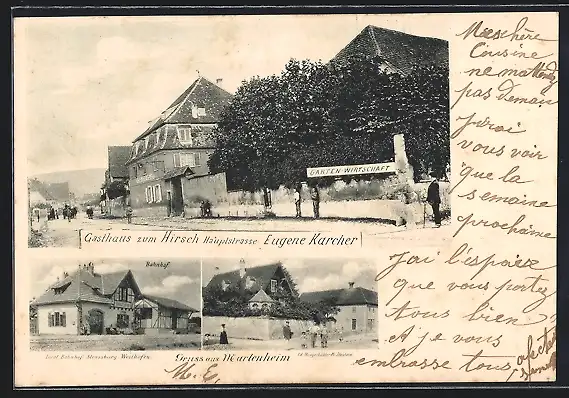 GARTEN-WIRTSCHAFT
Gasthaus zum Hirsch Hauptstrasse Eugene Karcher
Bahnhof
Local Bahnhof Strassburg-Westhofen
Gruss aus Marlenheim
M. E.
Ma chère
Cousine
ne m'attendez
pas demain
J'irai
vous voir
que la
semaine
prochaine
J'ai l'espoir
que vous portez
tous bien
et je vous
embrasse tous